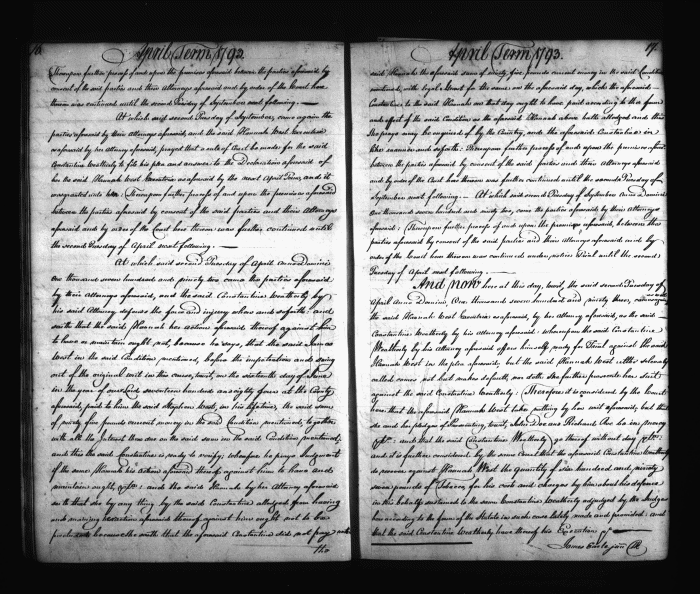 April Term 1792.
Thereupon further process of and upon the premises aforesaid between the parties aforesaid by
consent of the said parties and their Attorneys aforesaid and by order of the Court here
thereon was continued until the second Tuesday of September next following.
At which said second Tuesday of September, came again the
parties aforesaid by their Attorneys aforesaid and the said Hannah West Executrix
as aforesaid by her Attorney aforesaid, prayed that a rule of Court be made for the said
Constantine Weatherly to file his plea and answer to the Declaration aforesaid of
her the said Hannah West Executrix as aforesaid by the next April Term, and it
was granted unto her: Thereupon further process of and upon the premises aforesaid
between the parties aforesaid by consent of the said parties and their Attorneys
aforesaid and by order of the Court here thereon was further continued until
the second Tuesday of April next following.
At which said second Tuesday of April Anno Domini
One thousand seven hundred and ninety two came the parties aforesaid
by their Attorneys aforesaid, and the said Constantine Weatherly by
his said Attorney defends the force and injury when and so forth and
saith that the said Hannah her action aforesaid thereof against him
to have or maintain ought not, because he says, that the said James
West in the said Condition mentioned, before the impetration and suing
out of the original writ in this cause, to wit, on the sixteenth day of June
in the year of our Lord seventeen hundred and eighty four at the County
aforesaid, paid to him the said Stephen West, in his lifetime, the said sum
of ninety five pounds current money in the said Condition mentioned, together
with all the Interest then due on the said sum in the said Condition mentioned;
and this the said Constantine is ready to verify; wherefore he prays Judgment
if the same Hannah his Action aforesaid thereof against him to have and
maintain ought, &c. and the said Hannah by her Attorney aforesaid
saith that she by any thing by the said Constantine alledged from having
and maintaining her action aforesaid thereof against him ought not to be
precluded because she saith that the aforesaid Constantine did not pay
the
April Term 1793.
17.
said Hannah the aforesaid sum of ninety five pounds current money in the said Condition
mentioned, with legal Interest for the same on the aforesaid day, which the aforesaid
Constantine to the said Hannah on that day ought to have paid according to the form
and effect of the said Condition as the aforesaid Hannah above hath alledged and this
She prays may be enquired of by the Country, and the aforesaid Constantine in
like manner and so forth. Thereupon further process of and upon the premises aforesaid
between the parties aforesaid by consent of the said parties and their Attorneys aforesaid
and by order of the Court here thereon was further continued until the second Tuesday of
September next following. At which said second Tuesday of September Anno Domini
One thousand seven hundred and ninety two, came the parties aforesaid by their Attorneys
aforesaid; Thereupon further process of and upon the premises aforesaid, between the
parties aforesaid by consent of the said parties and their Attorneys aforesaid and by
order of the Court here thereon was continued until the second
Tuesday of April next following.
And now here at this day, to wit, the said second Tuesday of
April Anno Domini, One thousand seven hundred and ninety three,
the said Hannah West Executrix as aforesaid, by her Attorney aforesaid, as the said
Constantine Weatherly by his Attorney aforesaid: whereupon the said Constantine
Weatherly by his Attorney aforesaid offers himself ready for Trial against the said
Hannah West in the plea aforesaid, but the said Hannah West altho solemnly
called comes not but makes default, nor doth She further prosecute her suit
against the said Constantine Weatherly: Therefore it is considered by the Court
here that the aforesaid Hannah West take nothing by her writ aforesaid, but that
she and her pledges of Prosecuting, to wit, John Doe and Richard Roe be in mercy
&c. and that the said Constantine Weatherly go thereof without day &c.
and it is further considered by the same Court that the aforesaid Constantine Weatherly
do recover against Hannah West the quantity of six hundred and ninety
seven pounds of Tobacco, for his costs and charges by him about his defence
in this behalf sustained to the same Constantine Weatherly adjudged by the Judges
here according to the form of the Statute in such case lately made and provided: and
that the said Constantine Weatherly have thereof his Execution &c.
James Earle jun Clk